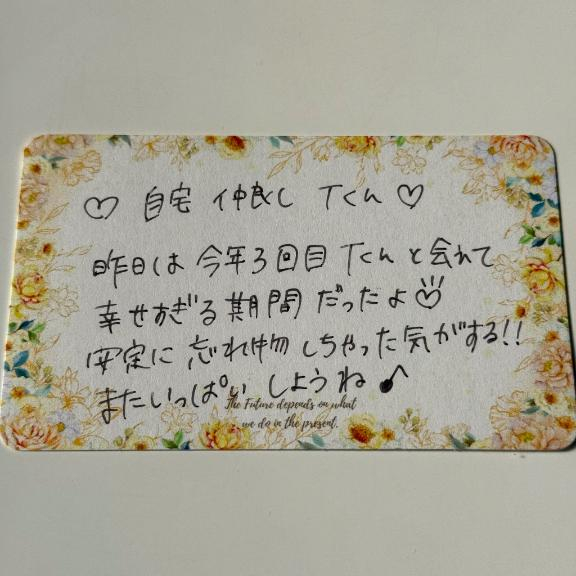 ♡ 自宅 仲良し Tくん ♡
昨日は今年3回目Tくんと会れて
幸せすぎる期間だったよ♡
安定に忘れ物しちゃった気がする!!
またいっぱいしようね♪
The Future depends on what
we do in the present.